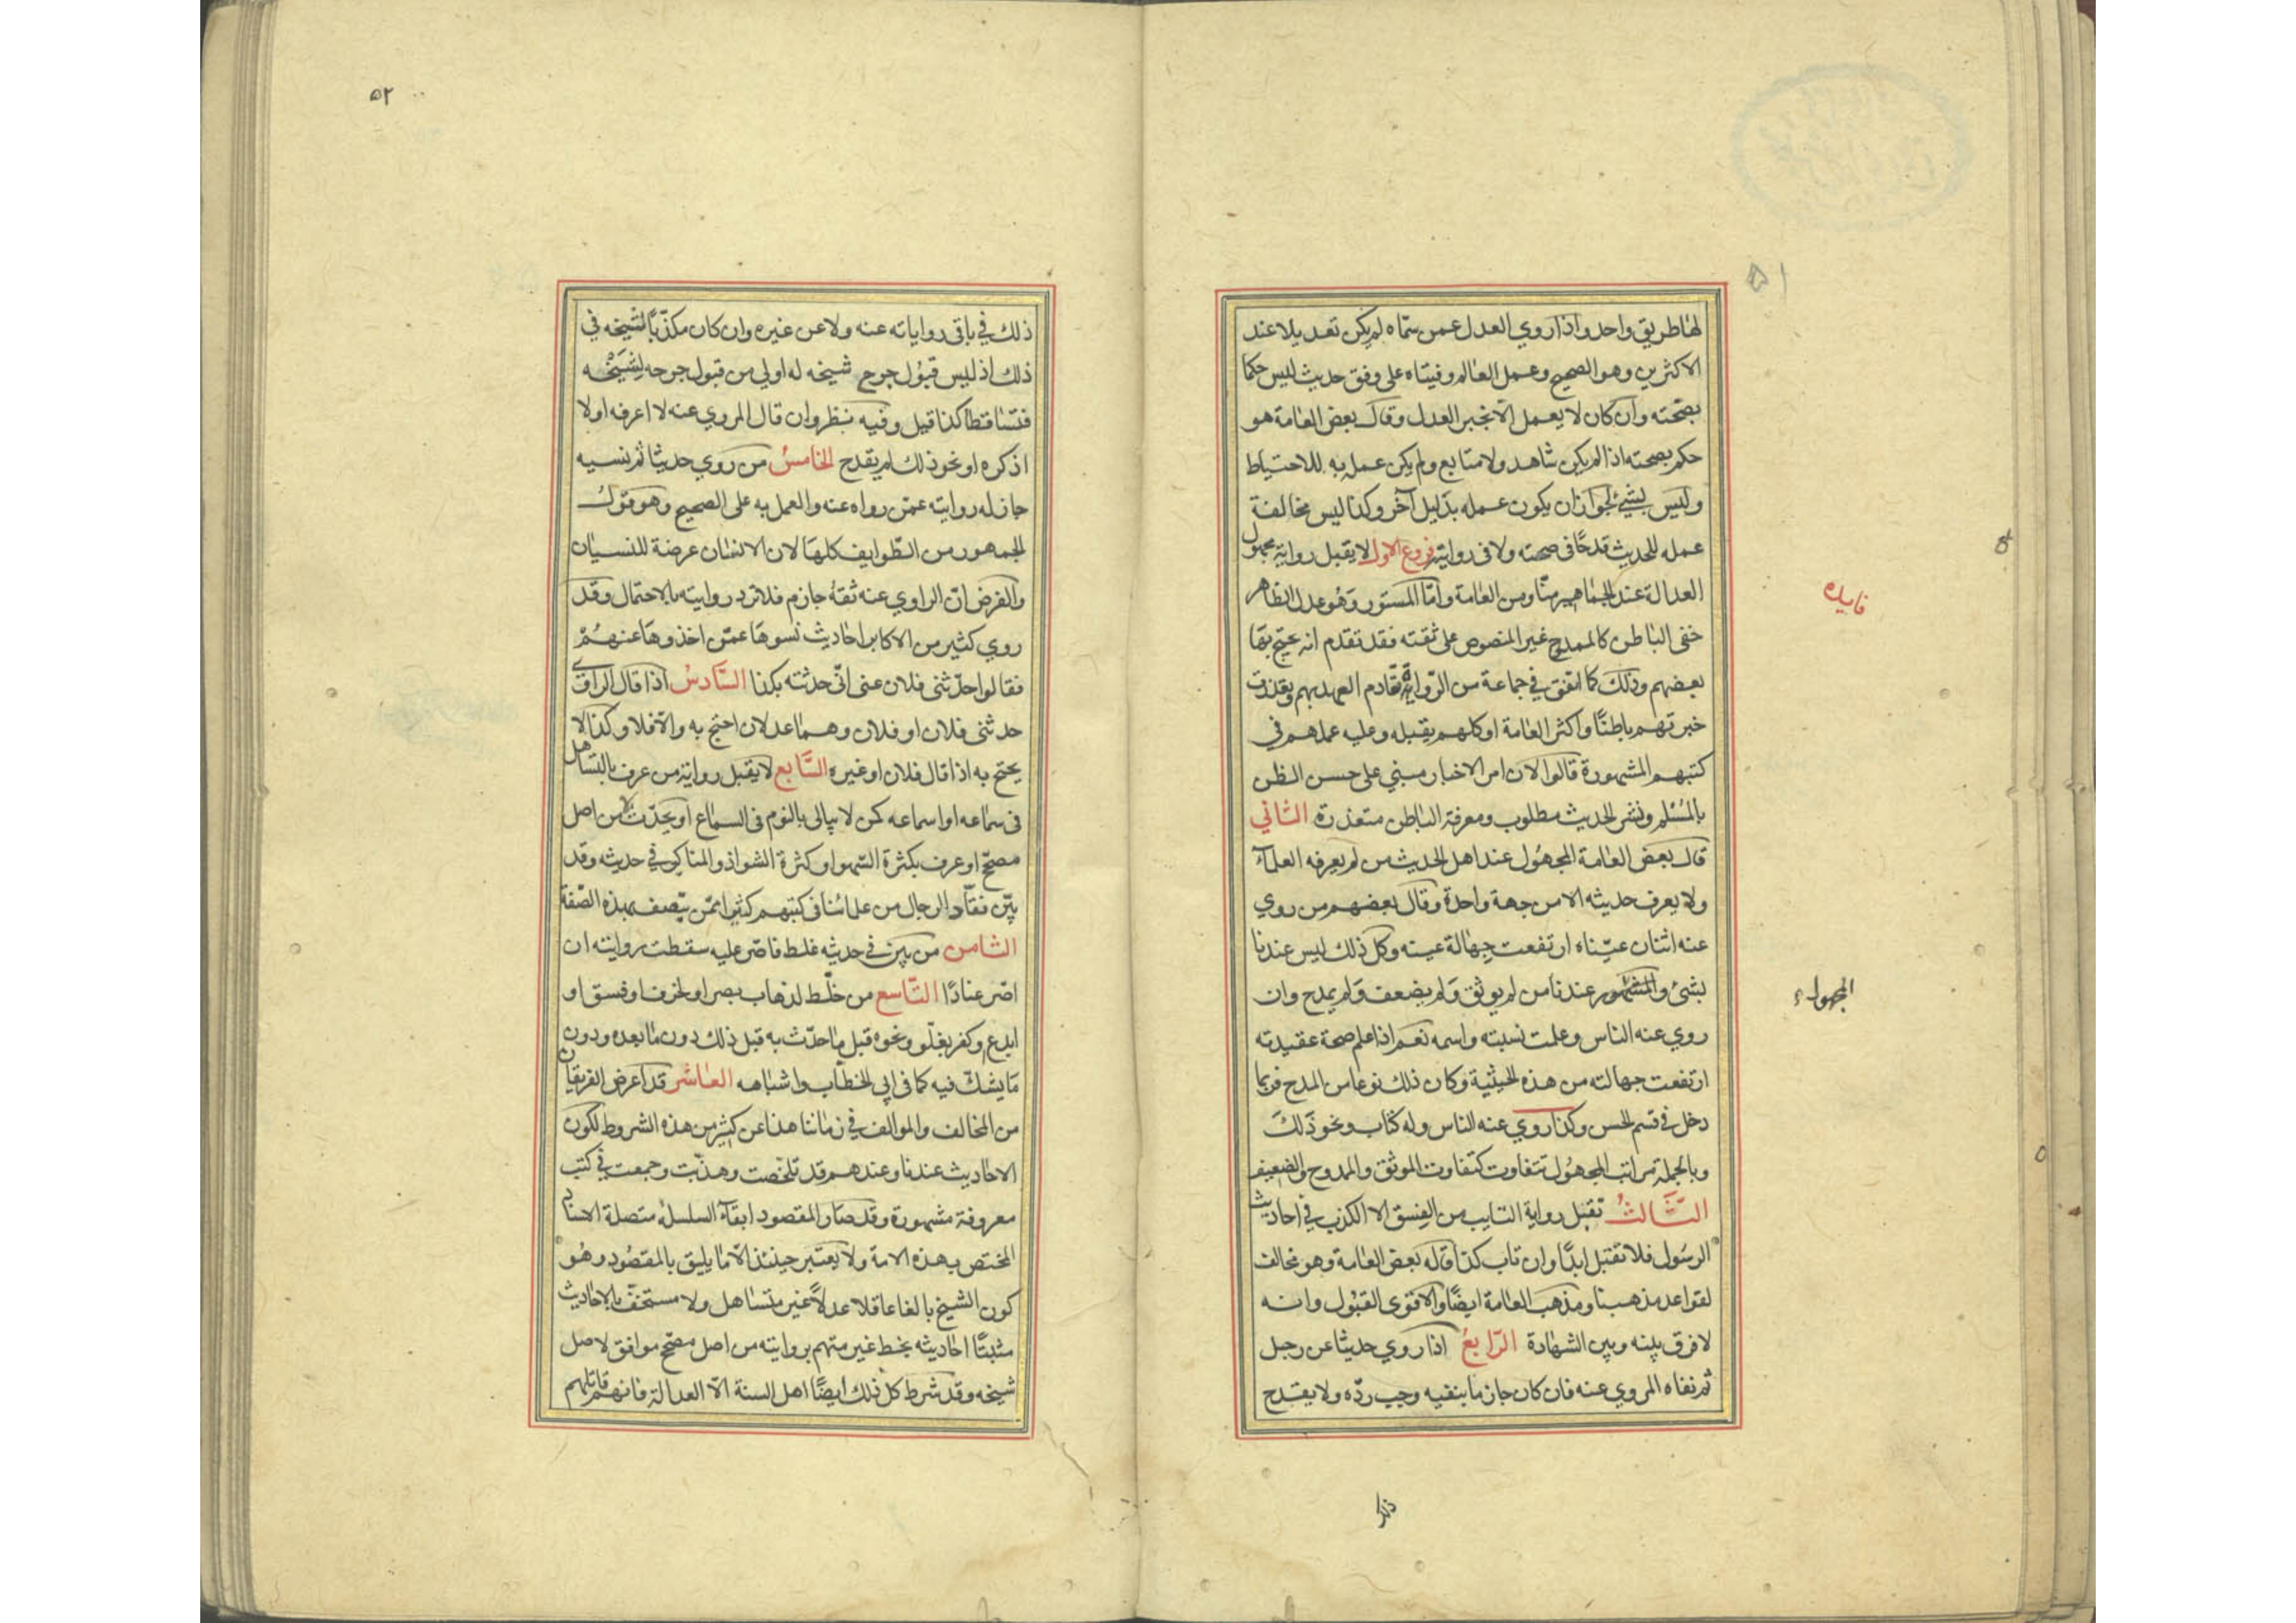 لها طريق واحد واذا روي العدل عمن سمّاه لم يكن تعديلا عند
الاكثرين وهو الصحيح وعمل العالم وفتياه على وفق حديث ليس حكما
بصحّته وان كان لا يعمل الّا بخبر العدل وقال بعض العامة هو
حكم بصحته اذا لم يكن شاهد ولا متابع ولم يكن عمل به للاحتياط
وليس بشيئ لجواز ان يكون عمله بدليل آخر وكذا ليس مخالفة
عمله للحديث قدحًا فى صحته ولا فى روايته فروع الاول لا يقبل رواية مجهول
العدالة عند الجماهير منّا ومن العامة وامّا المستور وهو عدل الظاهر
خفى الباطن كالممدوح غير المنصوص على ثقته فقد تقدم انه يحتج بها
بعضهم وذلك كما اتفق في جماعة من الرّواة تقادم العهد بهم وتعذرت
خبرتهم باطنًا واكثر العامة او كلهم يقبله وعليه عملهم في
كتبهم المشهورة قالوا لان امر الاخبار مبني على حسن الظن
بالمُسْلم ونشر الحديث مطلوب ومعرفة الباطن متعذرة الثاني
قال بعض العامة المجهول عند اهل الحديث من لم يعرفه العلمآء
ولا يعرف حديثه الا من جهة واحدة وقال بعضهم من روي
عنه اثنان عيّناه ارتفعت جهالة عينه وكل ذلك ليس عندنا
بشئ والمشهور عندنا من لم يوثق ولم يضعف ولم يمدح وان
روي عنه الناس وعلمت نسبته واسمه نعم اذا علم صحة عقيدته
ارتفعت جهالته من هذه الحيثية وكان ذلك نوعا من المدح فربما
دخل في قسم الحسن وكذا روي عنه الناس وله كتاب ونحو ذلك
وبالجملة مراتب المجهول تتفاوت كتفاوت الموثق والممدوح والضعيف
الثالثُ تقبل رواية التايب من الفسق الا الكذب في احاديث
الرسول فلا تقبل ابدًا وان تاب كذا قاله بعض العامة وهو مخالف
لقواعد مذهبنا ومذهب العامة ايضًا والاقوى القبول وانه
لا فرق بينه وبين الشهادة الرّابعُ اذا روي حديثا عن رجل
ثم نفاه المروي عنه فان كان جازما بنفيه وجب ردّه ولا يقدح
ذلك
فايده
المجهول
٥١
٥٢
ذلك في باقى رواياته عنه ولا عن غيره وان كان مكذّبًا لشيخه في
ذلك اذ ليس قبول جرح شيخه له اولي من قبول جرحه لشيخه
فتساقطا كذا قيل وفيه نظر وان قال المروي عنه لا اعرفه او لا
اذكره او نحو ذلك لم يقدح الخامسُ من روي حديثا ثم نسيه
جاز له روايته عمّن رواه عنه والعمل به على الصحيح وهو قول
الجمهور من الطّوايف كلها لان الانسان عرضة للنسيان
والفرض انّ الراوي عنه ثقة جازم فلا ترد روايته بالاحتمال وقد
روي كثير من الاكابر احاديث نسوها عمّن اخذوها عنهم
فقالوا حدّثنى فلان عنى انّى حدثته بكذا السّادسُ اذا قال الراوى
حدثنى فلان او فلان وهما عدلان احتج به والّا فلا وكذا لا
يحتج به اذا قال فلان او غيره السّابع لا يقبل رواية من عرف بالتساهل
فى سماعه او اسماعه كمن لا يبالى بالنوم فى السماع او يحدّث لا من اصل
مصحّح او عرف بكثرة السّهو او كثرة الشواذ والمناكير في حديثه وقد
بيّن نقّاد الرجال من علمائنا فى كتبهم كثيرا ممّن يتّصف بهذه الصّفة
الثامن من بين في حديثه غلط فاصّر عليه سقطت روايته ان
اصّر عنادًا التّاسع من خلّط لذهاب بصر او لخرف او فسق او
ابدع وكفر بغلّو ونحوه قبل ما حدّث به قبل ذلك دون ما بعده ودون
ما يشكّ فيه كما فى ابي الخطّاب واشباهه العاشر قد اعرض الفريقان
من المخالف والموالف في زماننا هذا عن كثير من هذه الشروط لكون
الاحاديث عندنا وعندهم قد تلخّصت وهذّبت وجمعت في كتب
معروفة مشهورة وقد صار المقصود ابقآء السلسلة متصلة الاسناد
المختص بهذه الامة ولا يعتبر حينئذ الّا ما يليق بالمقصود وهو
كون الشيخ بالغا عاقلا عدلًا غير متساهل ولا مستخف بالاحاديث
مثبتًا احاديثه بخط غير متهم بروايته من اصل مصحّح موافق لاصل
شيخه وقد شرط كل ذلك ايضًا اهل السنة الّا العدالة فانهم